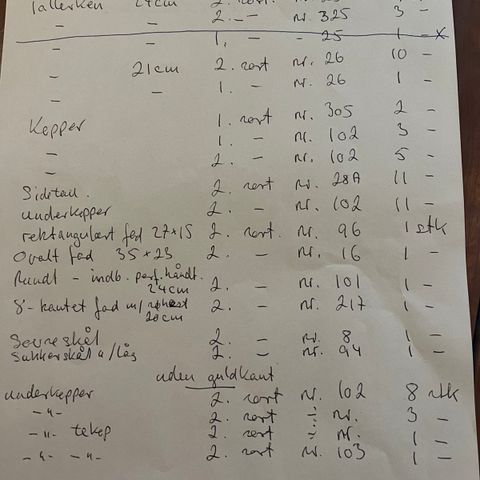 Tallerken 24cm 2. sort.
– – 2. – – nr. 325 3 –
– 1. – – 25 1 – x
– 21cm 2. sort nr. 26 10 –
– – 1. – nr. 26 1 –
Kopper 1. sort nr. 305 2 –
– 1. – nr. 102 3 –
– 2. – nr. 102 5 –
Sidetal. 2. sort nr. 28A 11 –
underkopper 2. – nr. 102 11 –
rektangulært fad 27×15 2. sort. nr. 96 1 stk
Ovalt fad 35×23 2. – nr. 16 1 –
Rundt – indb. perf. håndt. 24cm 2. – nr. 101 1 –
8-kantet fad m/ 20cm 2. – nr. 217 1 –
Sovseskål 2. – nr. 8 1 –
Sukkerskål u/låg 2. – nr. 94 1 –
uden guldkant
underkopper 2. sort nr. 102 8 stk
–"– 2. sort ÷ nr. 3 –
–"– tekop 2. sort ÷ nr. 1 –
–"– –"– 2. sort nr. 103 1 –